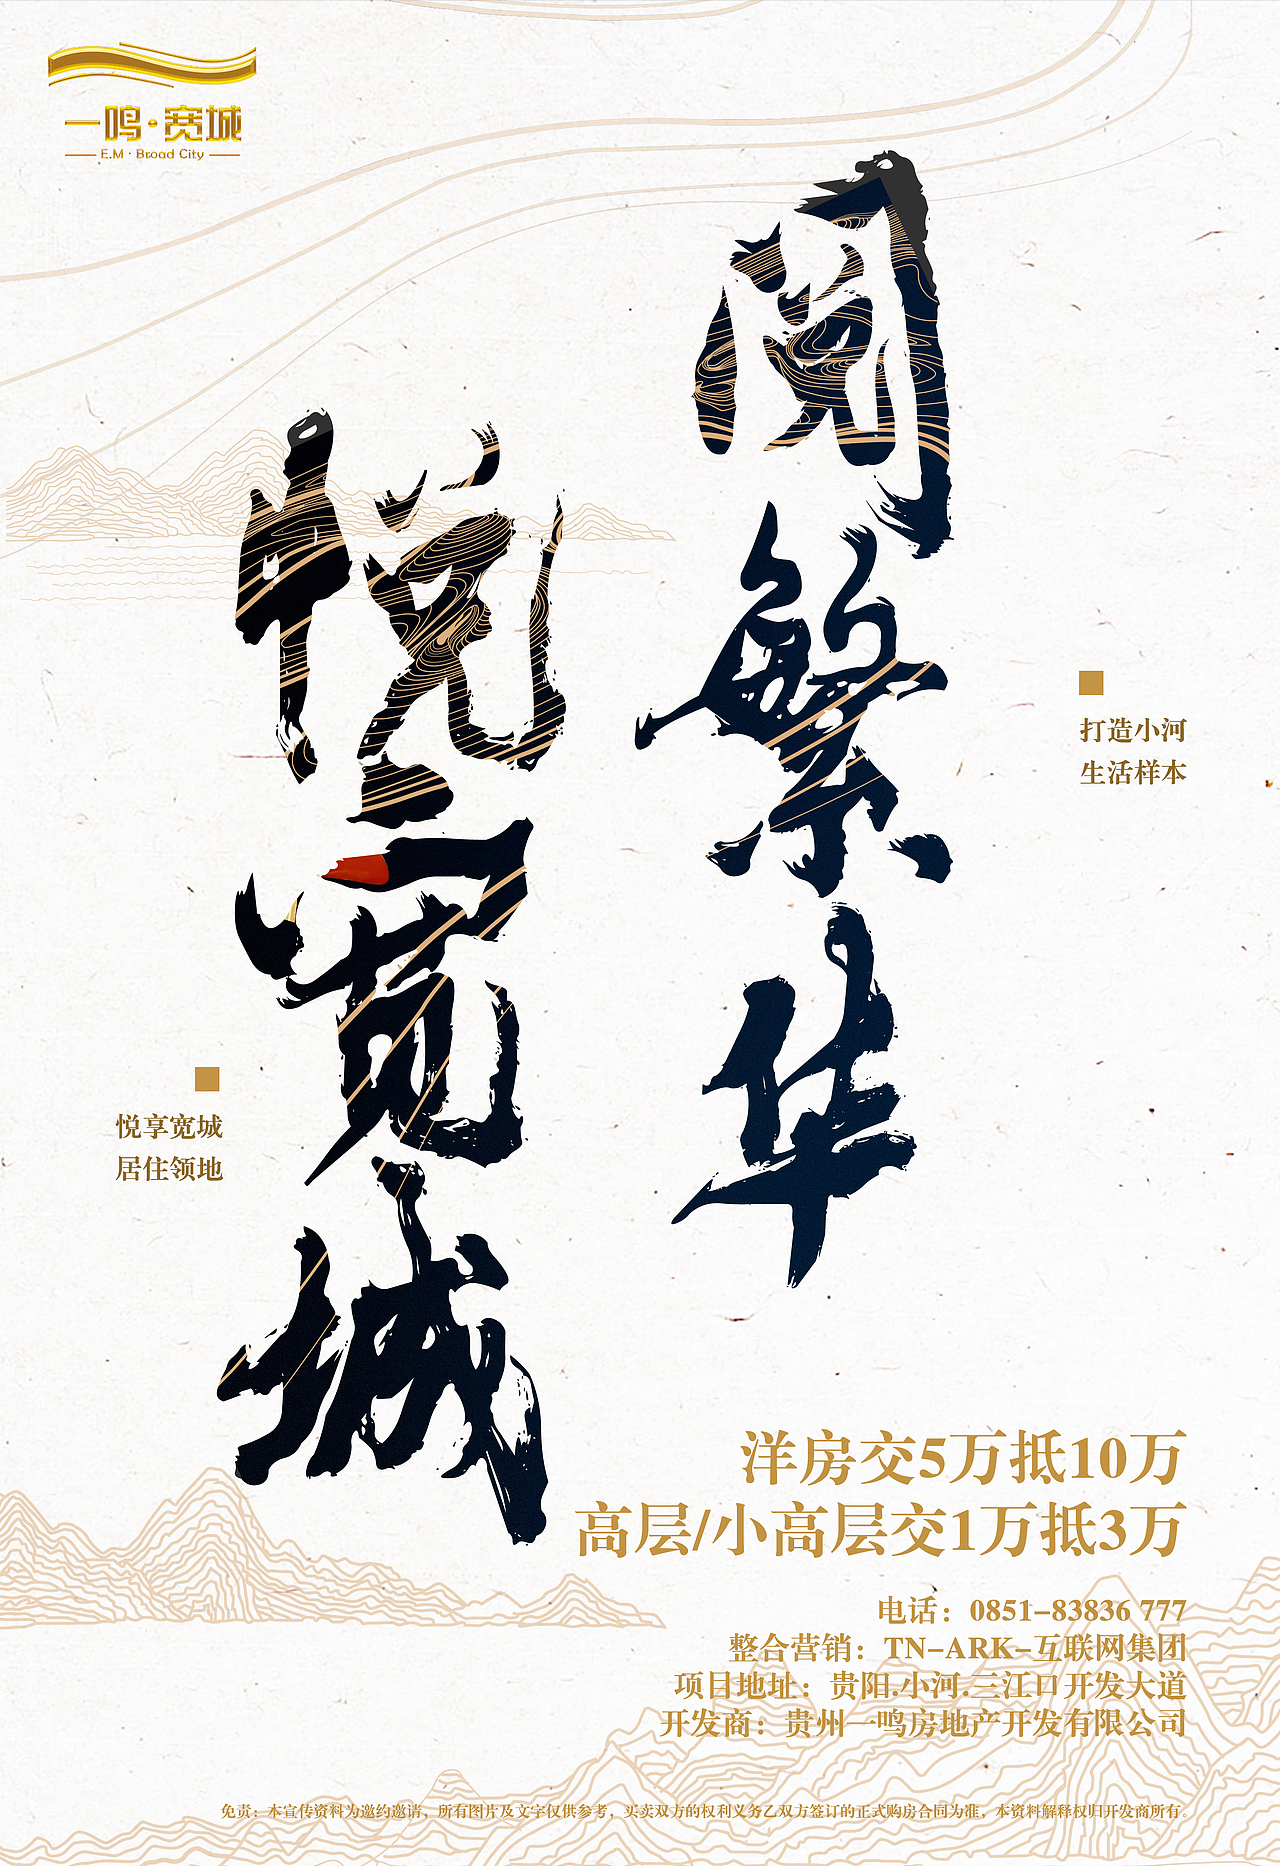 一鸣·宽城
E.M · Broad City
阅繁华
悦宽城
打造小河
生活样本
悦享宽城
居住领地
洋房交5万抵10万
高层/小高层交1万抵3万
电话：0851-83836 777
整合营销：TN-ARK-互联网集团
项目地址：贵阳.小河.三江口开发大道
开发商：贵州一鸣房地产开发有限公司
免责：本宣传资料为邀约邀请，所有图片及文字仅供参考，买卖双方的权利义务乙双方签订的正式购房合同为准，本资料解释权归开发商所有。